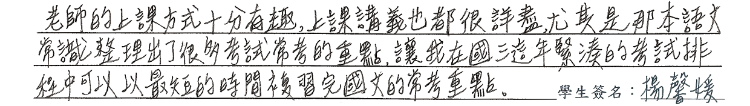 老師的上課方式十分有趣,上課講義也都很詳盡,尤其是那本語文
常識,整理出了很多考試常考的重點,讓我在國三這年緊湊的考試排
程中可以以最短的時間複習完國文的常考重點。 學生簽名：楊馨媛